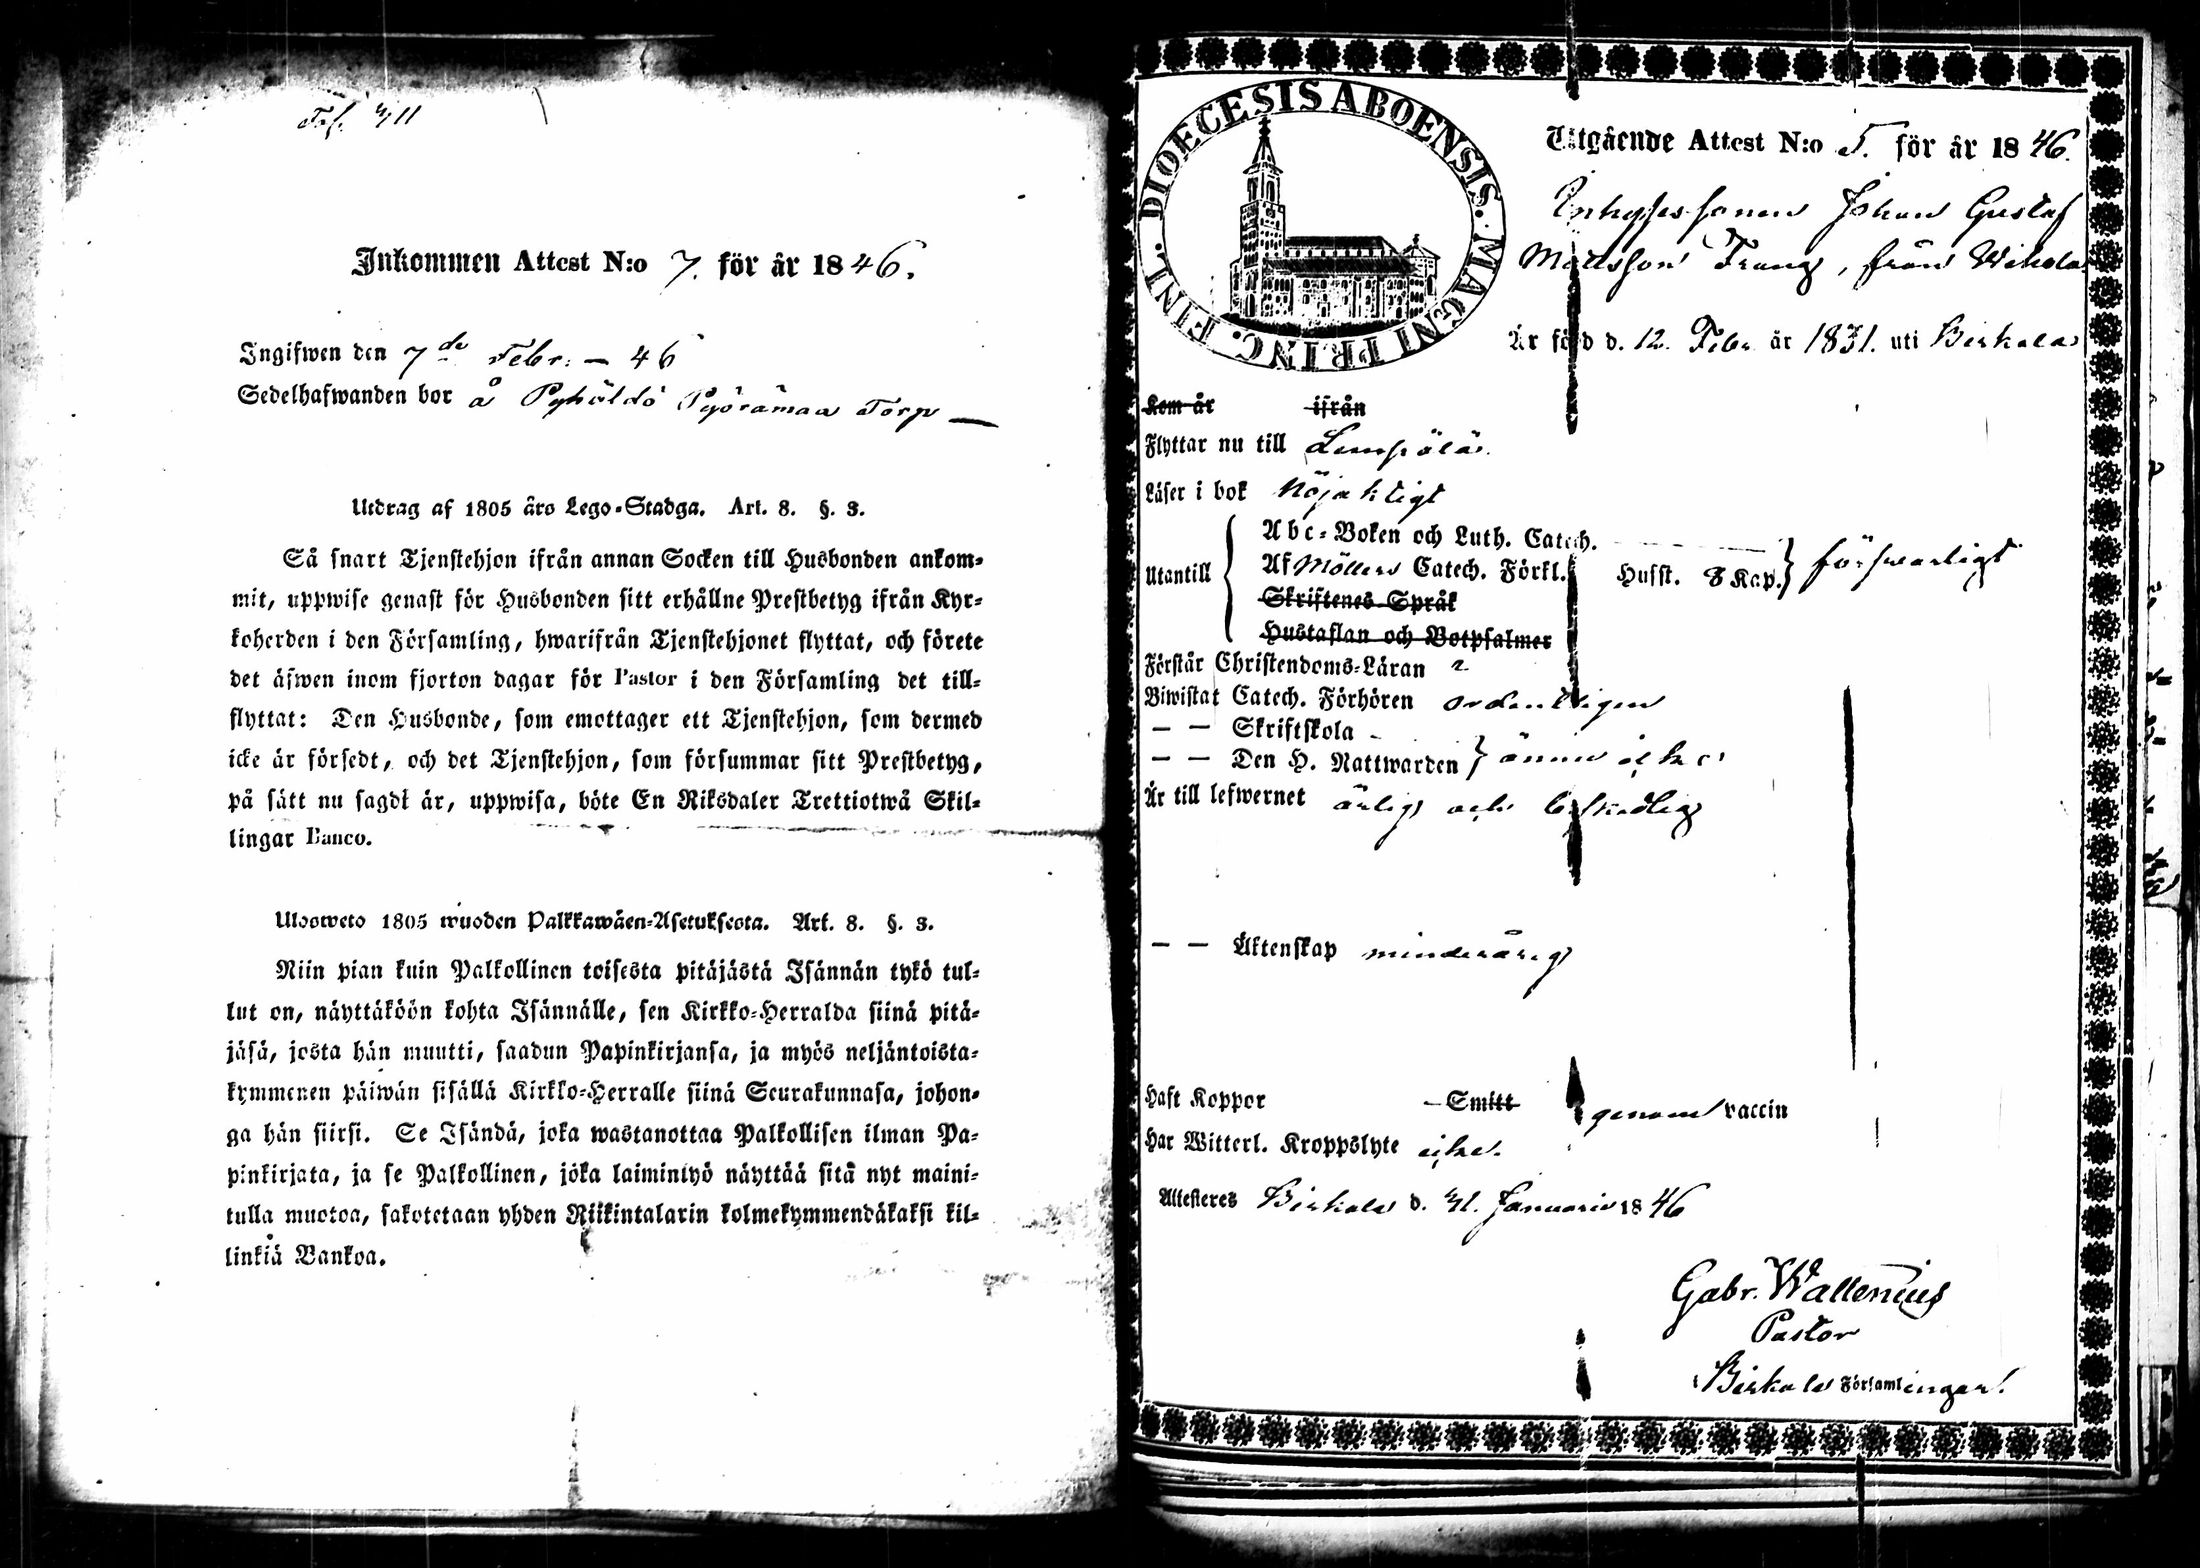 Inkommen Attest N:o 7. för år 1846.
Ingifwen den 7de Febr: – 46
Sedelhafwanden bor å Pyhöldö Pyörämaa Torp —
Utdrag af 1805 års Lego-Stadga. Art. 8. §. 3.
Så snart Tjenstehjon ifrån annan Socken till Husbonden ankom-
mit, uppwise genast för Husbonden sitt erhållne Prestbetyg ifrån Kyr-
koherden i den Församling, hwarifrån Tjenstehjonet flyttat, och förete
det äfwen inom fjorton dagar för Pastor i den Församling det till-
flyttat: Den Husbonde, som emottager ett Tjenstehjon, som dermed
icke är försedt, och det Tjenstehjon, som försummar sitt Prestbetyg,
på sätt nu sagdt är, uppwisa, böte En Riksdaler Trettiotwå Skil-
lingar Banco.
Ulosweto 1805 wuoden Palkkawäen-Asetuksesta. Art. 8. §. 3.
Niin pian kuin Palkollinen toisesta pitäjästä Isännän tykö tul-
lut on, näyttäköön kohta Isännälle, sen Kirkko-Herralda siinä pitä-
jäsä, josta hän muutti, saadun Papinkirjansa, ja myös neljäntoista-
kymmenen päiwän sisällä Kirkko-Herralle siinä Seurakunnasa, johon-
ga hän siirsi. Se Isändä, joka wastanottaa Palkollisen ilman Pa-
pinkirjata, ja se Palkollinen, joka laimintyö näyttää sitä nyt maini-
tulla muotoa, sakotetaan yhden Riikintalarin kolmekymmendäkaksi kil-
linkiä Bankoa.
DIOECESIS ABOENSIS. MAGNI PRINC. FINL.
Utgående Attest N:o 5. för år 1846.
Inhysessonen Johan Gustaf
Mattsson Frang, från Wihola
Är född d. 12. Febr. år 1831. uti Birkala
Kom år ifrån
Flyttar nu till Lempälä.
Läser i bok Nöjaktigt
Utantill
Abc-Boken och Luth. Catech.
Af Möllers Catech. Förkl. Hufst. 8 Kap. förswarligt
Skriftenes Språk
Hustaflan och Botpsalmer
Förstår Christendoms-Läran
Biwistat Catech. Förhören ordentligen
— — Skriftskola
— — Den H. Nattwarden ännu icke
Är till lefwernet ärlig och beskedlig
— — Äktenskap minderårig
Haft Koppor Smitt genom vaccin
Har Witterl. Kroppslyte icke.
Attesteres Birkala d. 31. Januarii 1846
Gabr. Wallenius
Pastor
Birkala Församlingar.